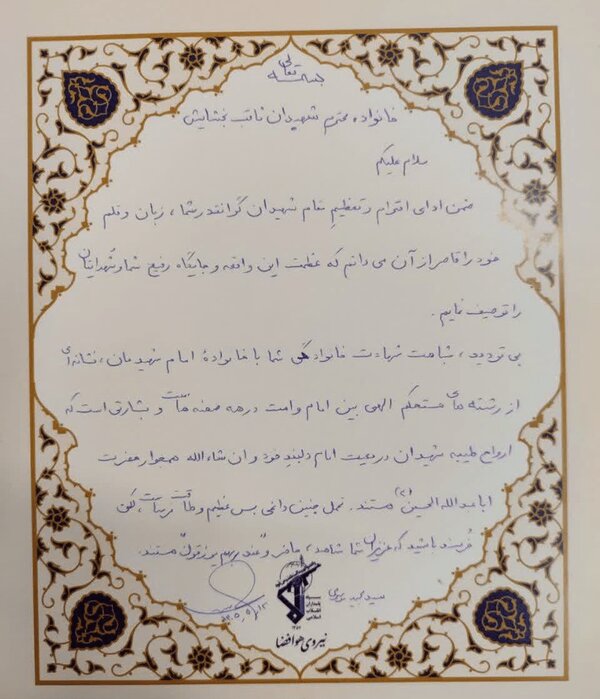 بسمه تعالی
خانواده محترم شهیدان نائب بخشایش
سلام علیکم
ضمن ادای احترام و تعظیمِ مقام شهیدان گرانقدر شما، زبان و قلم
خود را قاصر از آن می‌دانم که عظمت این واقعه و جایگاه رفیع شما و شهدایتان
را توصیف نمایم.
بی تردید، شباهت شهادت خانوادگی شما با خانوادهٔ امام شهیدمان، نشانه‌ای
از رشته های مستحکم الهی بین امام و امت در همه صحنه هاست و بشارتی است که
ارواح طیبه شهیدان در معیت امام دلبندِ خود و ان شاء الله همجوار حضرت
اباعبدالله الحسین (ع) هستند. تحمل چنین داغی بس عظیم و طاقت فرساست، لکن
خُرسند باشید که عزیزان شما شاهد، حاضر و "عند ربهم یرزقون" هستند.
سید مجید موسوی
سپاه
پاسداران
انقلاب
اسلامی
نیروی هوافضا